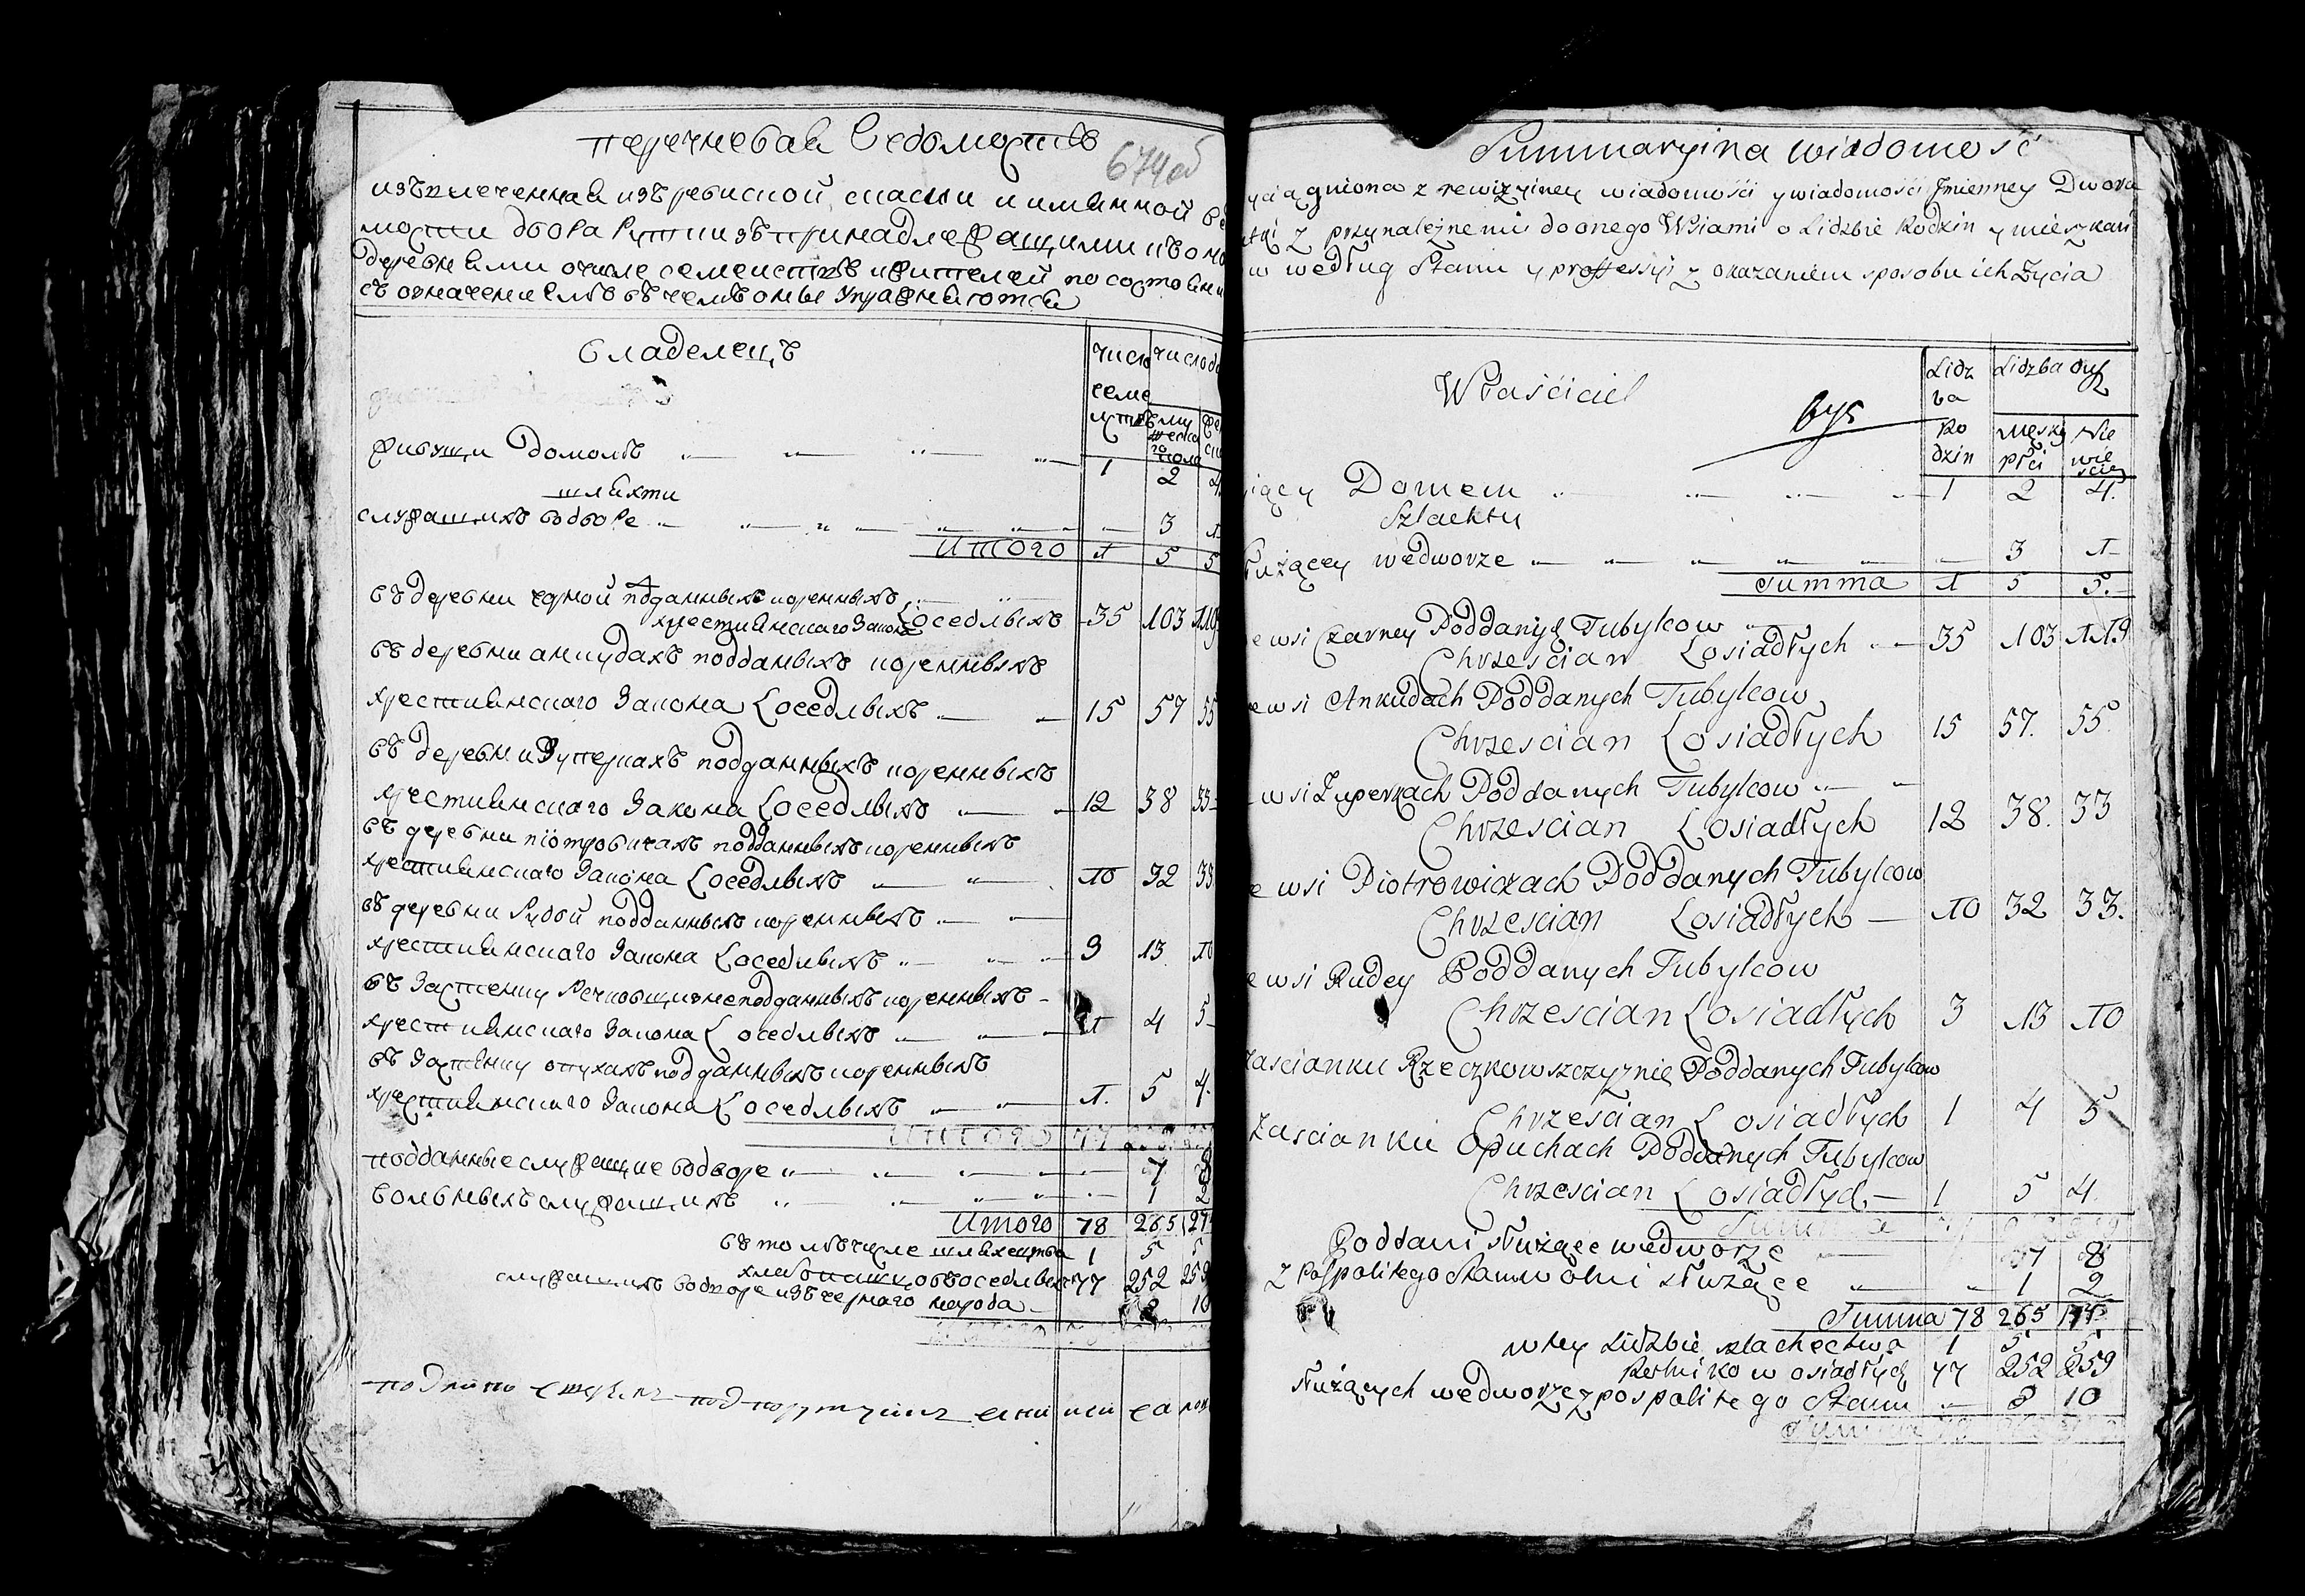 перечневая ведомость
674об
извлеченная изъ ревисной сказки и имянной ве
мости двора Рутки зъ принадлежащими ко оно
деревнями о числе семействъ и жителей по состояни
съ означениемъ въ чемъ оные упражняются
владелецъ
число
семе
число ду
живущи Домомъ 1 2 4
шляхти
служащихъ во дворе 3 1
Итого 1 5 5
въ деревни черной подданныхъ коренныхъ
християнскаго Закона Լоседлыхъ 35 103 119
въ деревни анкудахъ подданыхъ коренныхъ
християнскаго Закона Լоседлыхъ 15 57 55
въ деревни Зуперкахъ подданныхъ коренныхъ
християнскаго Закона Լоседлыхъ 12 38 33
въ деревни піотровичахъ подданныхъ коренныхъ
християнскаго Закона Լоседлыхъ 10 32 33
въ деревни Рудой подданныхъ коренныхъ
християнскаго Закона Լоседлыхъ 3 13 10
въ Застенку Речковщизне подданныхъ коренныхъ
християнскаго Закона Լоседлыхъ 1 4 5
въ Застенку опухахъ подданныхъ коренныхъ
християнскаго Закона Լоседлыхъ 1. 5 4.
Итого 77
подданные служащие во дворе 7 8
вольныхъ служащихъ 1 2
Итого 78 265 27
въ томъ числе шляхецтва 1 5 5
хлебопашцовъ оседлыхъ 77 252 259
служащихъ во дворе изъ чернаго народа 8 10
Summaryina wiadomość
yciągniona z rewizyiney wiadomośći y wiadomośći Jmienney Dwora
utki z przynależnemi do onego Wsiami o Lidzbie Rodzin y mieszkań
w według Stanu y professyi z okazaniem sposobu ich Życia
Właśćiciel
był
Lidz
ba
Ro
dzin
Lidzba dusz
męsky
płci
Nie
wie
sciey
iący Domem 1 2 4.
Szlachty
łużącey wedworze 3 1
Summa 1 5 5.
e wsi Czarney Poddanych Tubylcow
Chrzescian Losiadłych 35 103 119
ewsi Ankudach Poddanych Tubylcow
Chrzescian Losiadłych 15 57. 55.
ewsi Zuperkach Poddanych Tubylcow
Chrzescian Losiadłych 12 38. 33
e wsi Piotrowiczach Poddanych Tubylcow
Chrzescian Losiadłych 10 32 33.
e wsi Rudey Poddanych Tubylcow
Chrzescian Losiadłych 3 13 10
Zascianku Rzeczkowszczyznie Poddanych Tubylcow
Chrzescian Losiadłych 1 4 5
Zascianku Opuchach Poddanych Tubylcow
Chrzescian Losiadłych 1 5 4.
Summa
Poddani służące wedworze 7 8
z Pospolitego Stanu wolni służące 1 2
Summa 78 265 274
w tey Lidzbie szlachectwa 1 5 5
Rolnikow osiadłych 77 252 259
służących wedworze z pospolitego Stanu 8 10
Summa